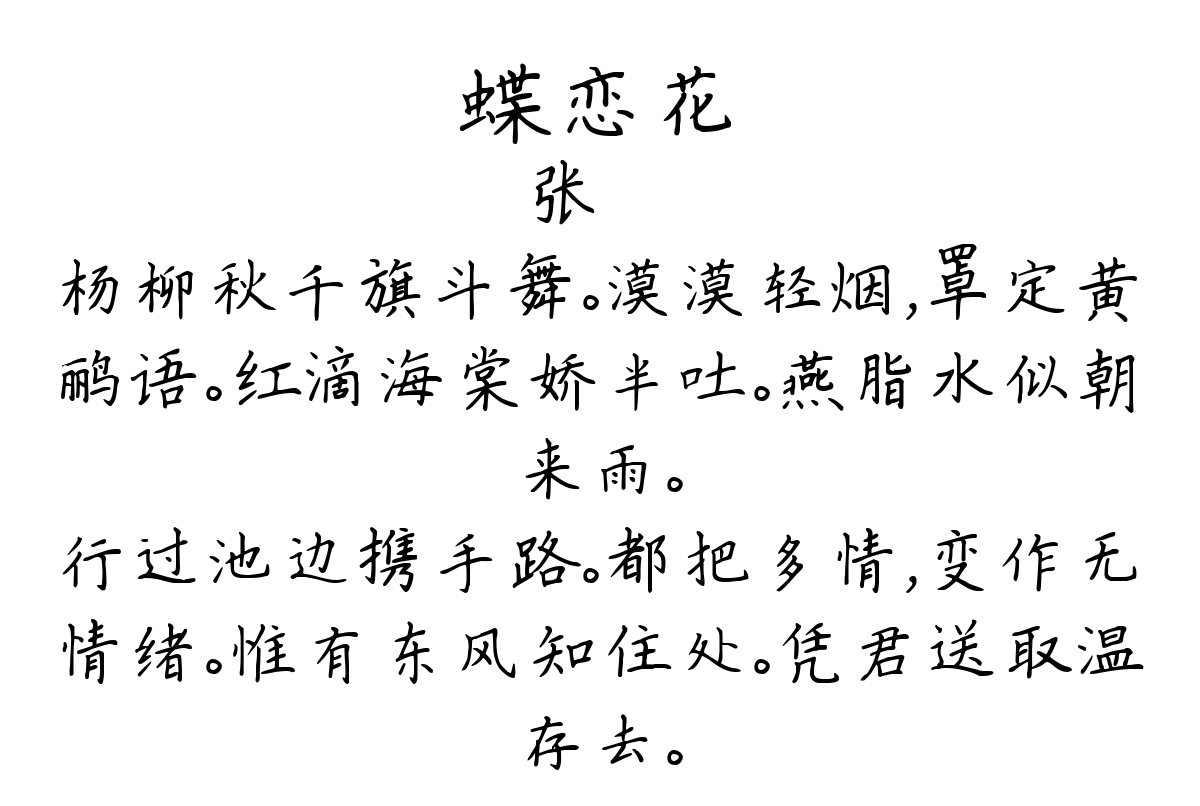 蝶恋花
张
杨柳秋千旗斗舞。漠漠轻烟,罩定黄
鹂语。红滴海棠娇半吐。燕脂水似朝
来雨。
行过池边携手路。都把多情,变作无
情绪。惟有东风知住处。凭君送取温
存去。